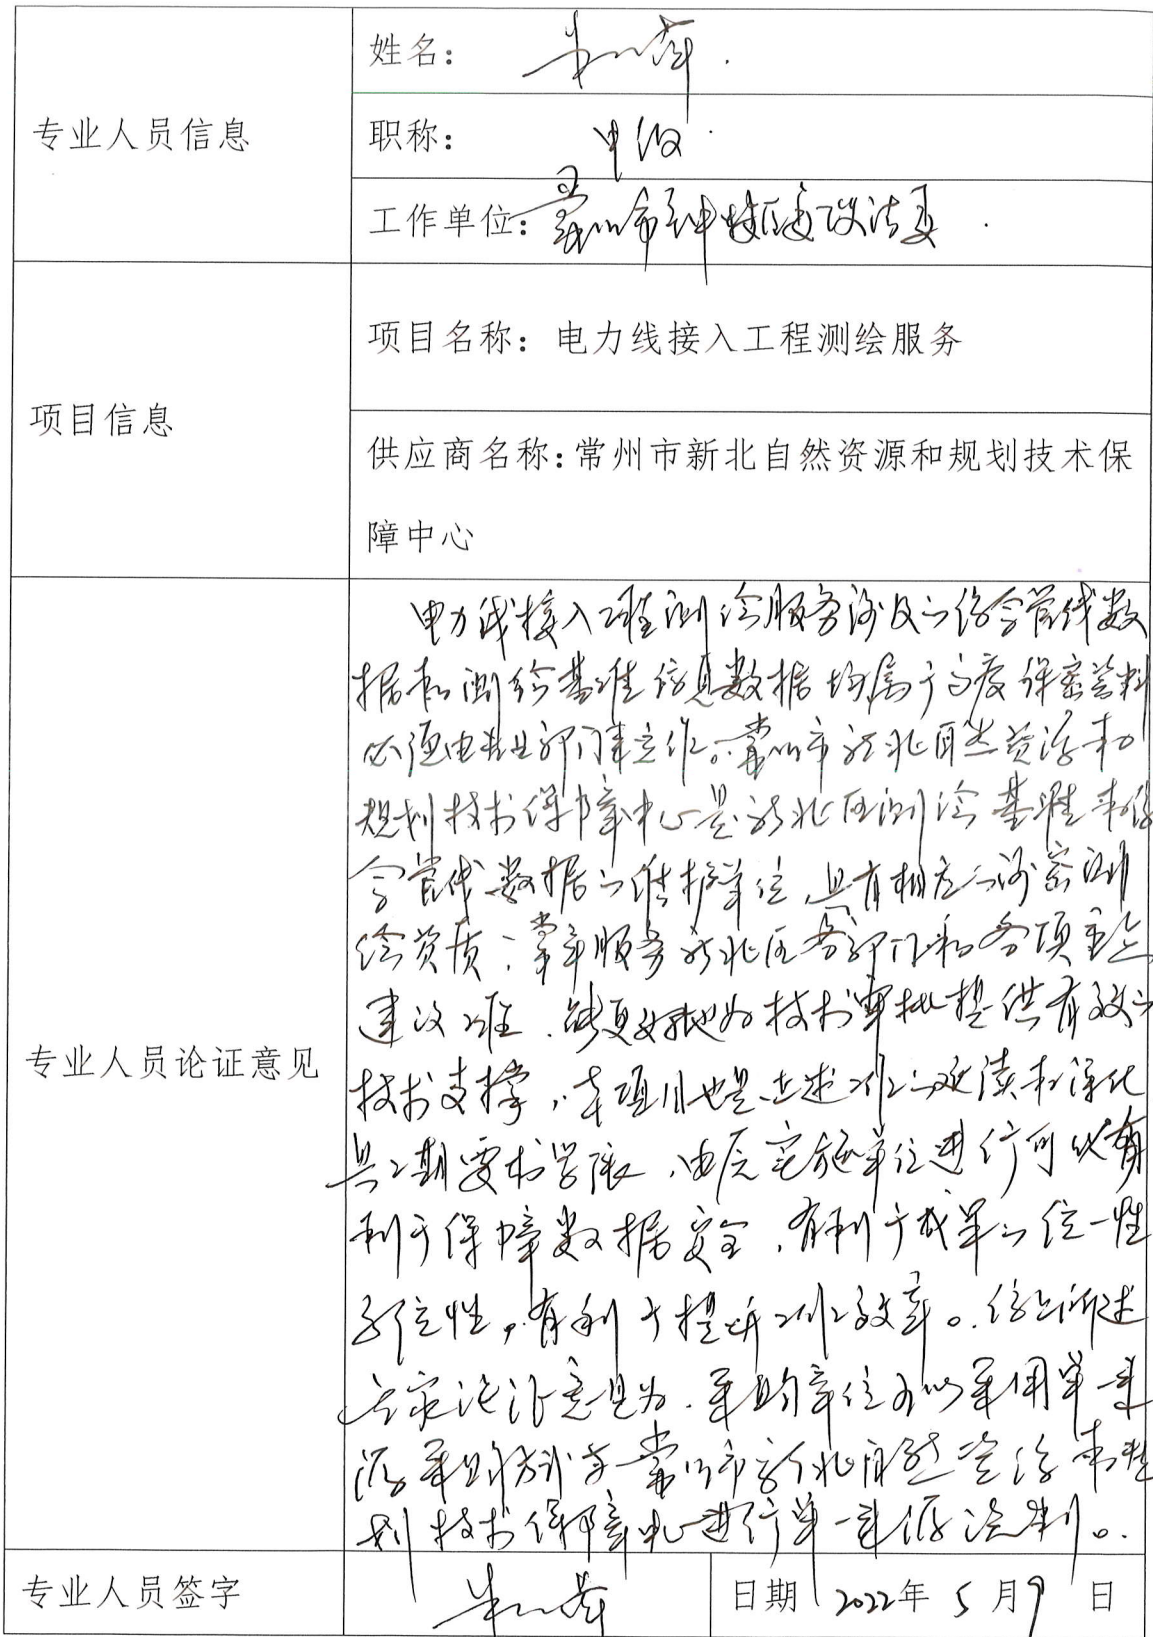 专业人员信息
姓名：
职称： 中级
工作单位：
项目信息
项目名称：电力线接入工程测绘服务
供应商名称：常州市新北自然资源和规划技术保
障中心
专业人员论证意见
电力线接入工程测绘服务涉及的综合管线数
据和测绘基准信息数据均属于高度保密资料
必须由专业部门来完作。常州市新北自然资源和
规划技术保障中心是新北区测绘基准和综
合管线数据的维护单位，具有相应的涉密测
绘资质；常年服务新北区各部门和各项重点
建设工程，能更好地为技术审批提供有效的
技术支撑，本项目也是上述工作的延续和深化
具工期要求紧张，由原实施单位进行可以有
利于保障数据安全，有利于成果的统一性
，有利于提升工作效率。综上所述
专家论证意见为，采购单位可以采用单一来
源采购方式与常州市新北自然资源和规
划技术保障中心进行单一来源谈判。
专业人员签字
日期 2022年 5月9日